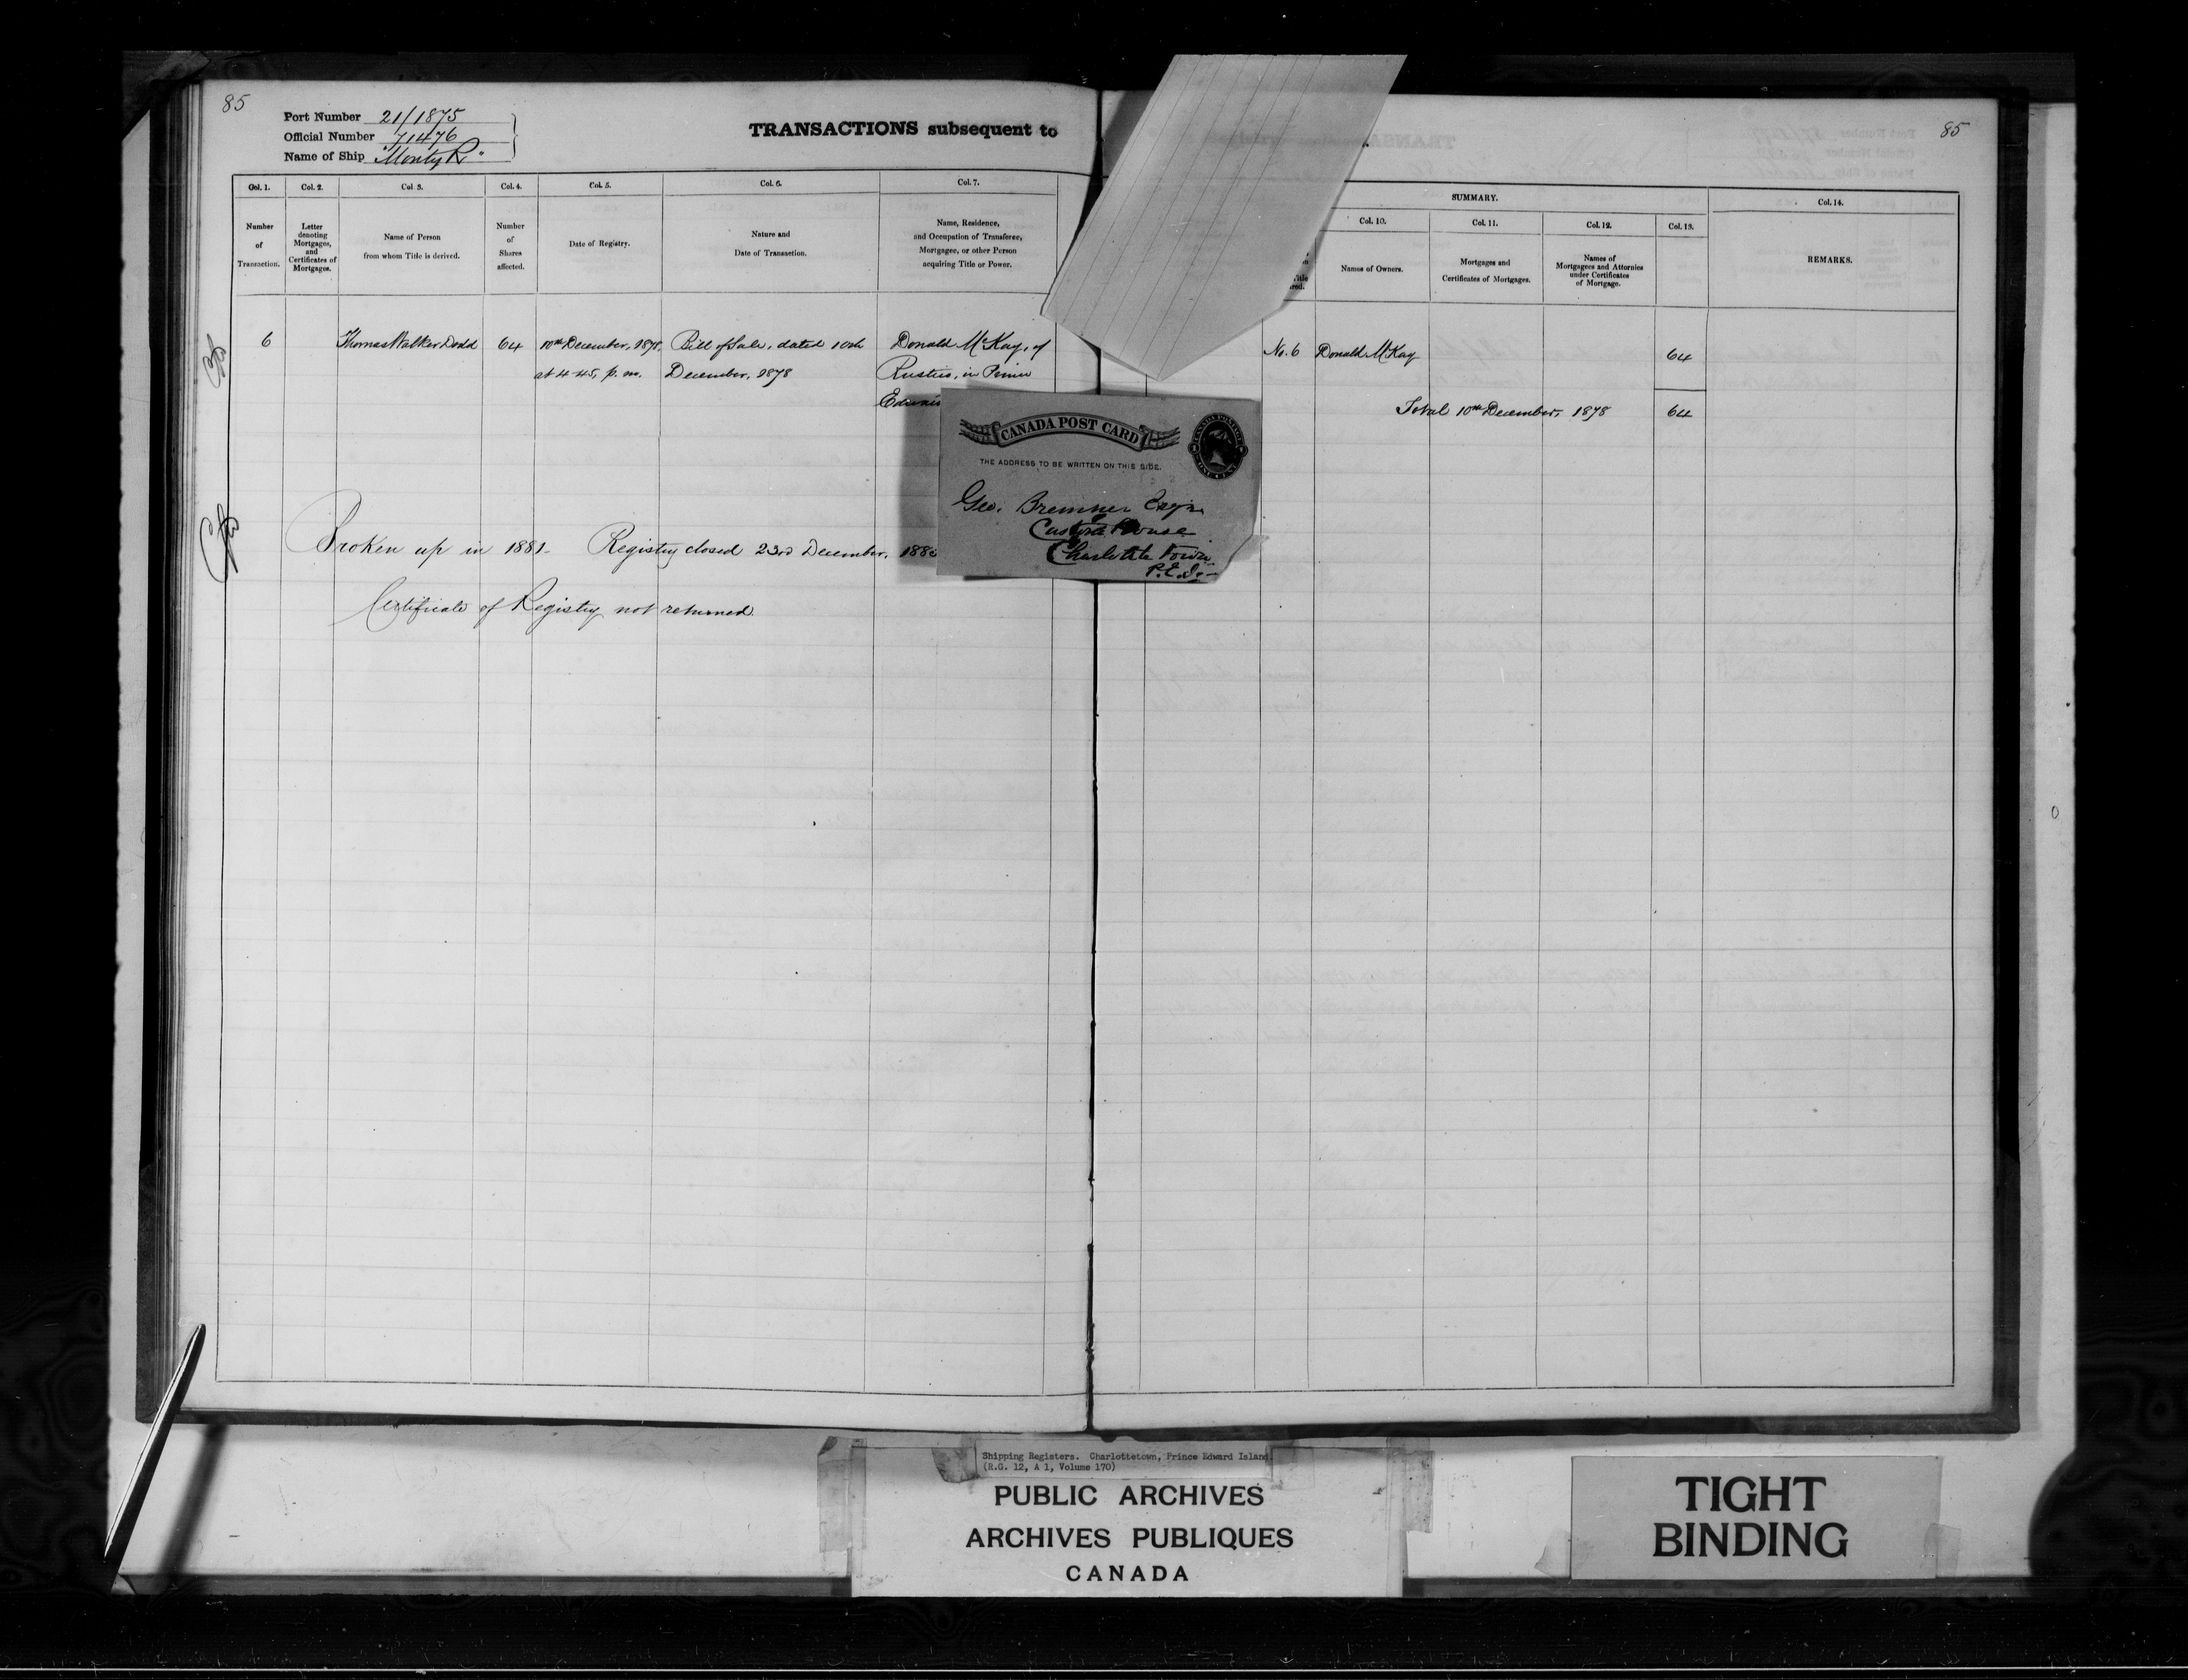 85
Port Number 21/1875
Official Number 71476
Name of Ship "Monty R."
TRANSACTIONS subsequent to
Col. 1.
Col. 2.
Col. 3.
Col. 4.
Col. 5.
Col. 6.
Col. 7.
Number
of
Transaction.
Letter
denoting
Mortgages,
and
Certificates of
Mortgages.
Name of Person
from whom Title is derived.
Number
of
Shares
affected.
Date of Registry.
Nature and
Date of Transaction.
Name, Residence,
and Occupation of Transferee,
Mortgagee, or other Person
acquiring Title or Power.
6
Thomas Walker Dodd
64
10th December, 1878,
at 4.45, p. m.
Bill of Sale, dated 10th
December, 1878
Donald McKay, of
Rustico, in Prince
Edward
Broken up in 1881. Registry closed 23rd December,
Certificate of Registry not returned
85
SUMMARY.
Col. 10.
Col. 11.
Col. 12.
Col. 13.
Col. 14.
Names of Owners.
Mortgages and
Certificates of Mortgages.
Names of
Mortgagees and Attornies
under Certificates
of Mortgage.
REMARKS.
No. 6
Donald McKay
64
Total 10th December, 1878
64
CANADA POST CARD
THE ADDRESS TO BE WRITTEN ON THIS SIDE.
Geo. Bremner Esqr.
Custom House
Charlotte Town
P.E.I.
Shipping Registers. Charlottetown, Prince Edward Island
(R.G. 12, A 1, Volume 170)
PUBLIC ARCHIVES
ARCHIVES PUBLIQUES
CANADA
TIGHT
BINDING